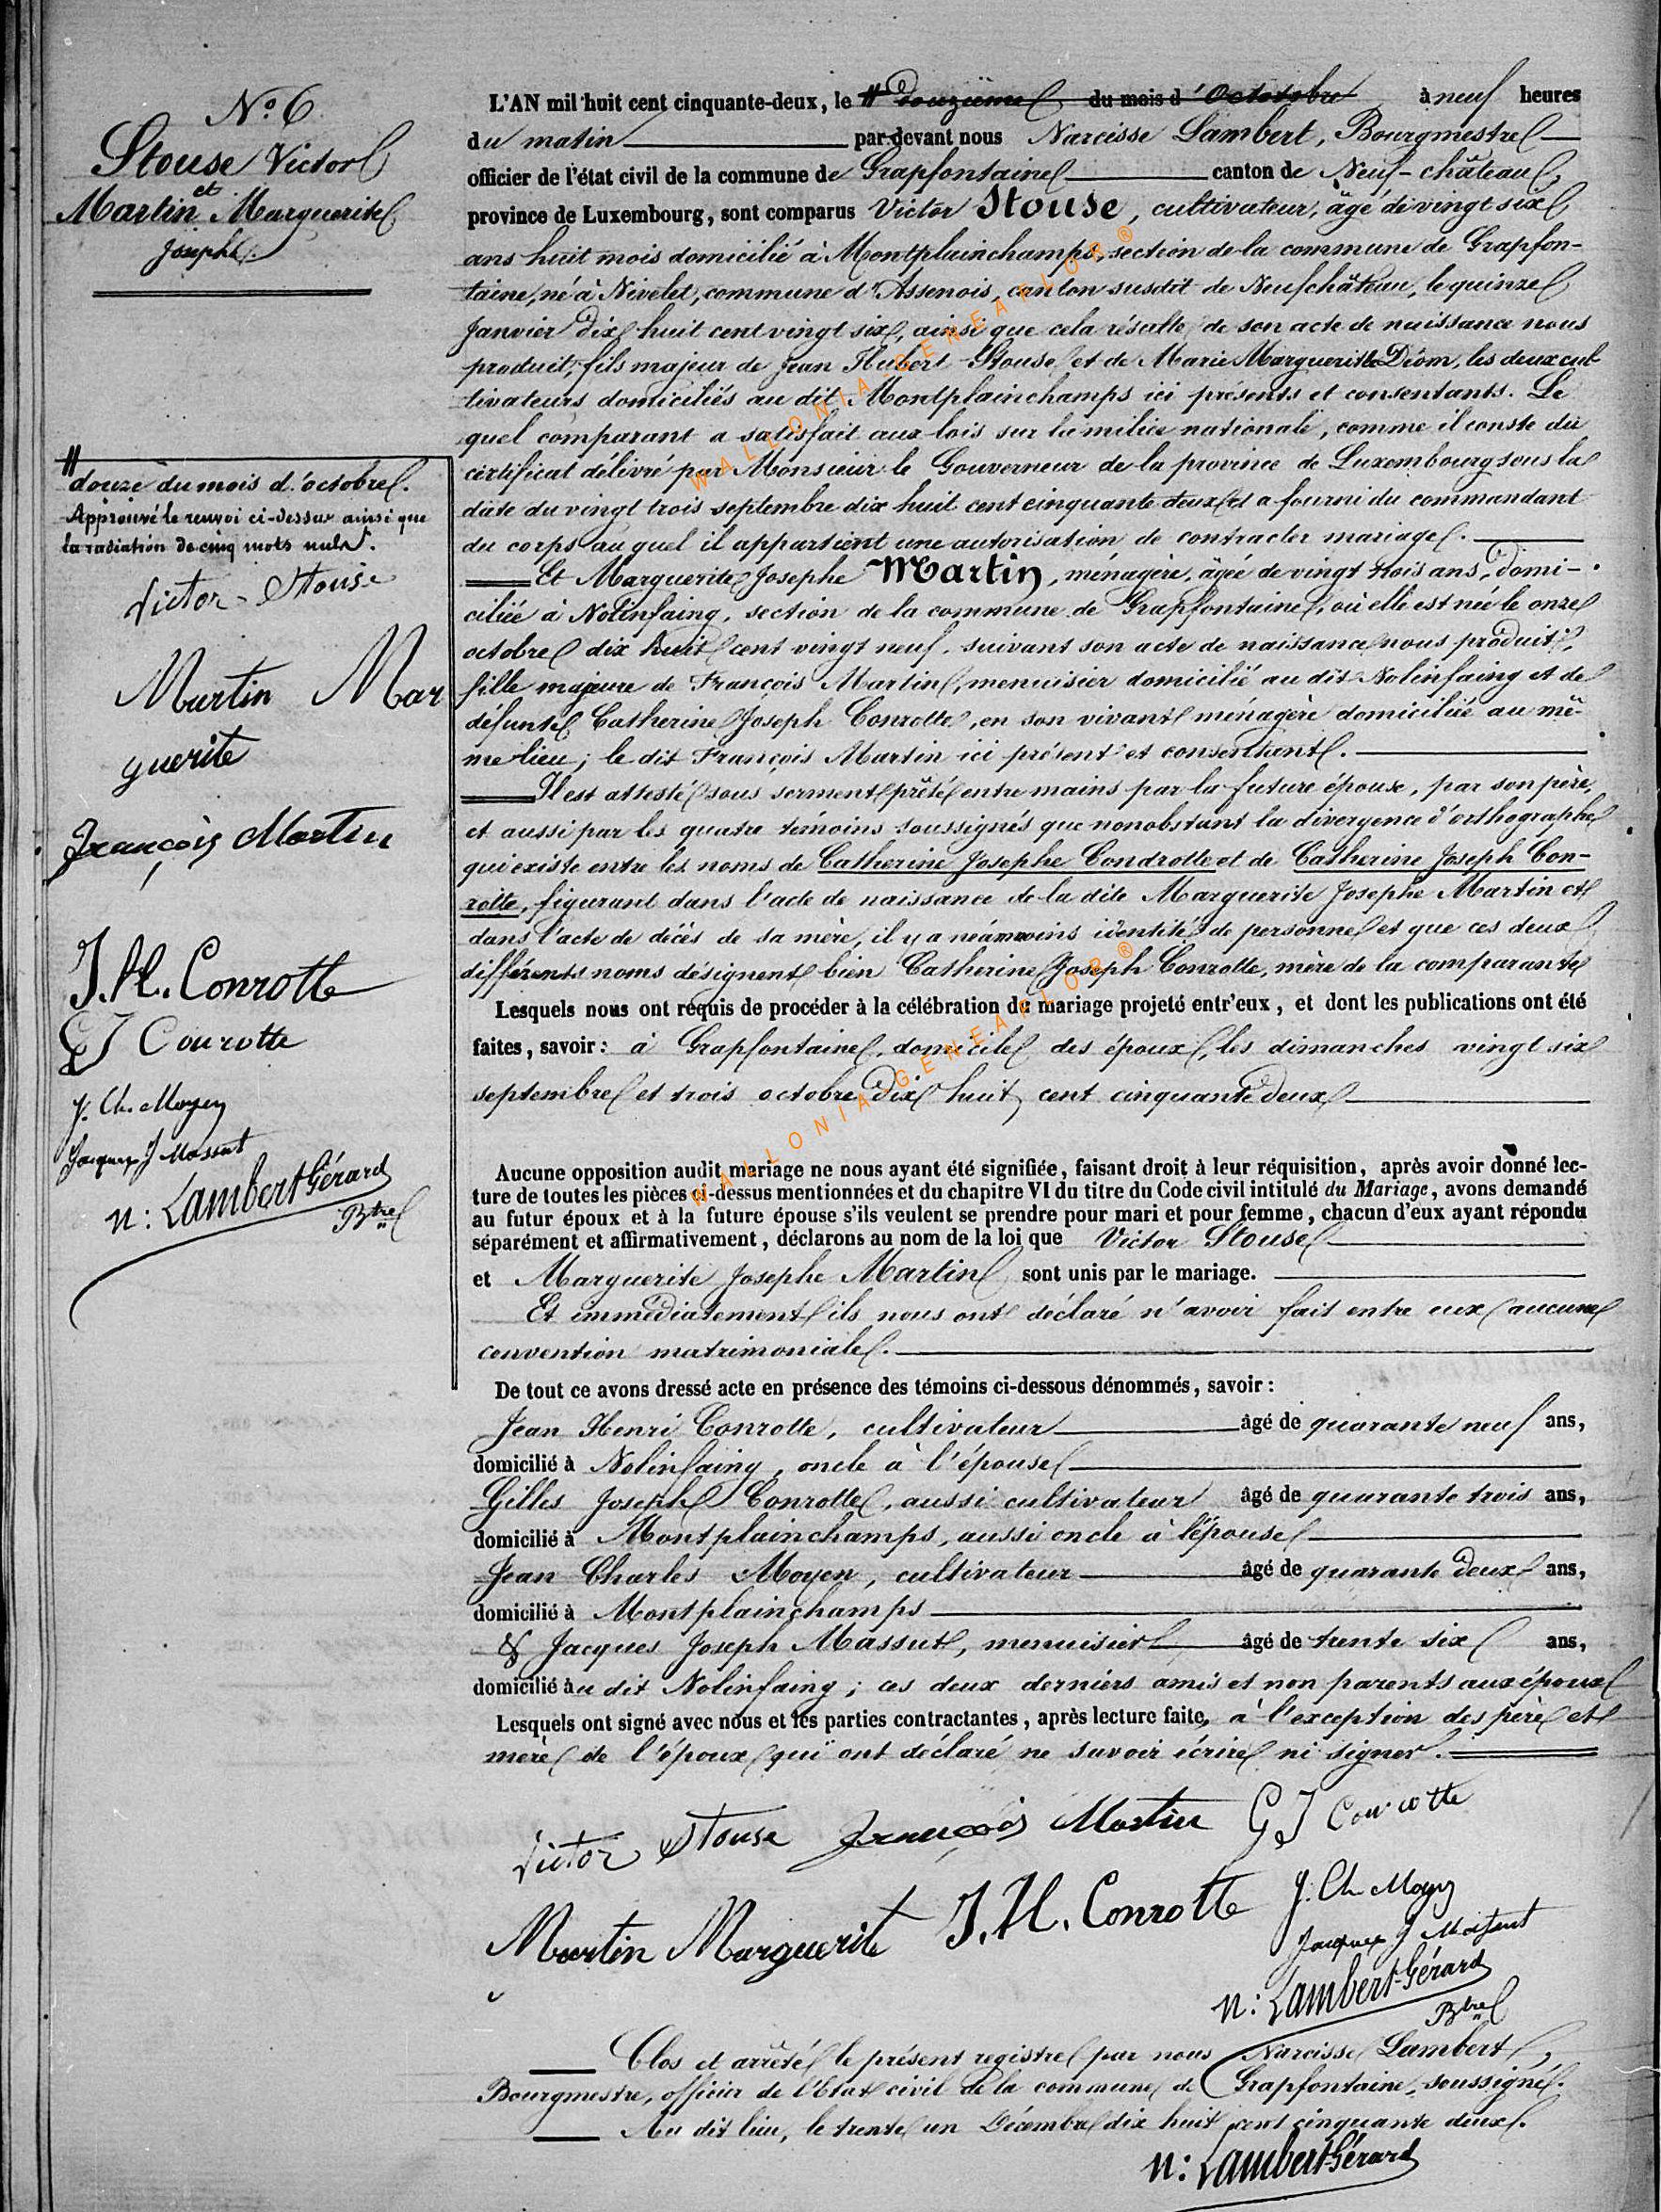 N.o 6
Stouse Victor
et
Martin Marguerite
Josephe.
L'AN mil huit cent cinquante-deux, le # douzième du mois d'Octobre à neuf heures
du matin par-devant nous Narcisse Lambert, Bourgmestre
officier de l'état civil de la commune de Grapfontaine canton de Neuf-château,
province de Luxembourg, sont comparus Victor Stouse, cultivateur, âgé de vingt six
ans huit mois domicilié à Montplainchamps, section de la commune de Grapfon-
taine, né à Nivelet, commune d'Assenois, canton susdit de Neufchâteau, le quinze
Janvier dix huit cent vingt six, ainsi que cela résulte de son acte de naissance nous
produit; fils majeur de Jean Hubert Stouse et de Marie Marguerite Diom, les deux cul-
tivateurs domiciliés au dit Montplainchamps ici présents et consentants. Le
quel comparant a satisfait aux lois sur la milice nationale, comme il conste du
certificat délivré par Monsieur le Gouverneur de la province de Luxembourg sous la
date du vingt trois septembre dix huit cent cinquante deux et a fourni du commandant
du corps auquel il appartient une autorisation de contracter mariage.
Et Marguerite Josephe Martin, ménagère, âgée de vingt trois ans, domi-
ciliée à Nolinfaing, section de la commune de Grapfontaine, où elle est née le onze
octobre dix huit cent vingt neuf, suivant son acte de naissance nous produit,
fille majeure de François Martin, menuisier domicilié au dit Nolinfaing et de
défunte Catherine Joseph Conrotte, en son vivant ménagère domiciliée au mê-
me lieu; le dit François Martin ici présent et consentant.
Il est attesté sous serment prêté entre mains par la future épouse, par son père,
et aussi par les quatre témoins soussignés que nonobstant la divergence d'orthographe
qui existe entre les noms de Catherine Josephe Condrotte et de Catherine Joseph Con-
rotte, figurant dans l'acte de naissance de la dite Marguerite Josephe Martin et
dans l'acte de décès de sa mère, il y a néammoins identité de personne et que ces deux
différents noms désignent bien Catherine Joseph Conrotte, mère de la comparante
Lesquels nous ont requis de procéder à la célébration du mariage projeté entr'eux, et dont les publications ont été
faites, savoir: à Grapfontaine, domicile des époux, les dimanches vingt six
septembre et trois octobre dix huit cent cinquante deux
Aucune opposition audit mariage ne nous ayant été signifiée, faisant droit à leur réquisition, après avoir donné lec-
ture de toutes les pièces ci-dessus mentionnées et du chapitre VI du titre du Code civil intitulé du Mariage, avons demandé
au futur époux et à la future épouse s'ils veulent se prendre pour mari et pour femme, chacun d'eux ayant répondu
séparément et affirmativement, déclarons au nom de la loi que Victor Stouse
et Marguerite Josephe Martin sont unis par le mariage.
Et immédiatement ils nous ont déclaré n'avoir fait entre eux aucune
convention matrimoniale.
De tout ce avons dressé acte en présence des témoins ci-dessous dénommés, savoir:
Jean Henri Conrotte, cultivateur âgé de quarante neuf ans,
domicilié à Nolinfaing, oncle à l'épouse
Gilles Joseph Conrotte, aussi cultivateur âgé de quarante trois ans,
domicilié à Montplainchamps, aussi oncle à l'épouse
Jean Charles Moyen, cultivateur âgé de quarante deux ans,
domicilié à Montplainchamps
& Jacques Joseph Massut, menuisier âgé de trente six ans,
domicilié au dit Nolinfaing; ces deux derniers amis et non parents aux époux
Lesquels ont signé avec nous et les parties contractantes, après lecture faite, à l'exception des père et
mère de l'époux qui ont déclaré ne savoir écrire ni signer.
Victor Stouse François Martin G J Conrotte
Martin Marguerite J. H. Conrotte J. Ch Moyen
Jacques J Massut
N: Lambert-Gérard
Btre
Clos et arrêté le présent registre par nous Narcisse Lambert,
Bourgmestre, officier de l'Etat civil de la commune de Grapfontaine, soussigné.
Au dit lieu, le trente un Décembre dix huit cent cinquante deux.
N: Lambert-Gérard
# douze du mois d'octobre.
Approuvé le renvoi ci-dessus ainsi que
la radiation de cinq mots nuls.
Victor Stouse
Martin Mar
guerite
François Martin
J. H. Conrotte
G J Conrotte
J. Ch. Moyen
Jacques J Massut
N: Lambert Gérard
Btre
WALLONIA-GENEAFLOR®
WALLONIA-GENEAFLOR®